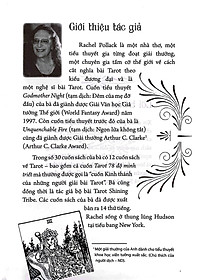 Giới thiệu tác giả
Rachel Pollack là một nhà thơ, một
tiểu thuyết gia từng đoạt giải thưởng,
một chuyên gia tầm cỡ thế giới về cách
cắt nghĩa bài Tarot theo
kiểu đương đại và là
một nghệ sĩ bài Tarot. Cuốn tiểu thuyết
Godmother Night (tạm dịch: Đêm của mẹ đỡ
đầu) của bà đã giành được Giải Văn học Giả
tưởng Thế giới (World Fantasy Award) năm
1997. Còn cuốn tiểu thuyết trước đó của bà là
Unquenchable Fire (tạm dịch: Ngọn lửa không tắt)
cũng đã giành giải thưởng Arthur C. Clarke*
(Arthur C. Clarke Award).
Trong số 30 cuốn sách của bà có 12 cuốn sách
về Tarot – bao gồm cả cuốn Tarot 78 độ minh
triết mà thường được gọi là "cuốn Kinh thánh
của những người giải bài Tarot". Bà cũng
đồng thời là tác giả bộ bài Tarot Shining
Tribe. Các cuốn sách của bà đã được xuất
bản ra 14 thứ tiếng.
Rachel sống ở thung lũng Hudson
tại tiểu bang New York.
*Một giải thưởng của Anh dành cho tiểu thuyết
khoa học viễn tưởng xuất sắc. (Chú thích của
người dịch – ND).